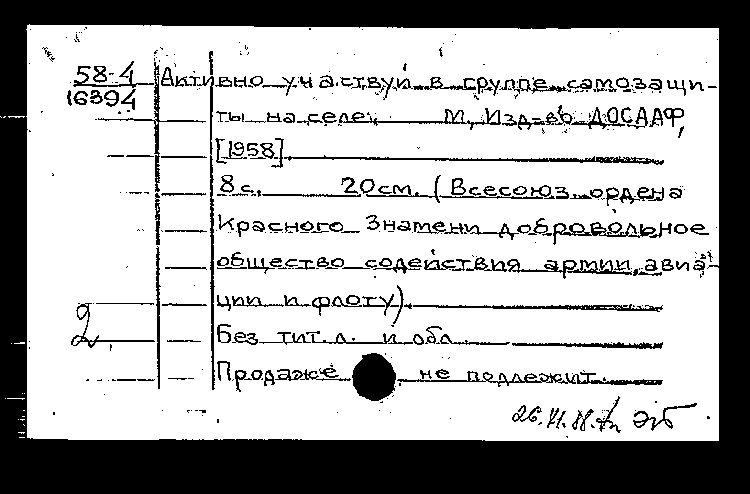 58-4
16394
Активно участвуй в группе самозащи-
ты на селе. М, Изд-во ДОСААФ,
[1958].
8с. 20см. (Всесоюз. ордена
Красного Знамени добровольное
общество содействия армии, авиа-
ции и флоту).
Без тит. л. и обл.
Продаже не подлежит.
2